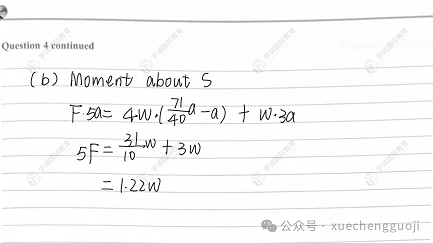 Question 4 continued
(b) Moment about S
F·5a = 4W·(71/40 a - a) + W·3a
5F = 31/10 W + 3W
= 1.22W
公众号 · xuechengguoji